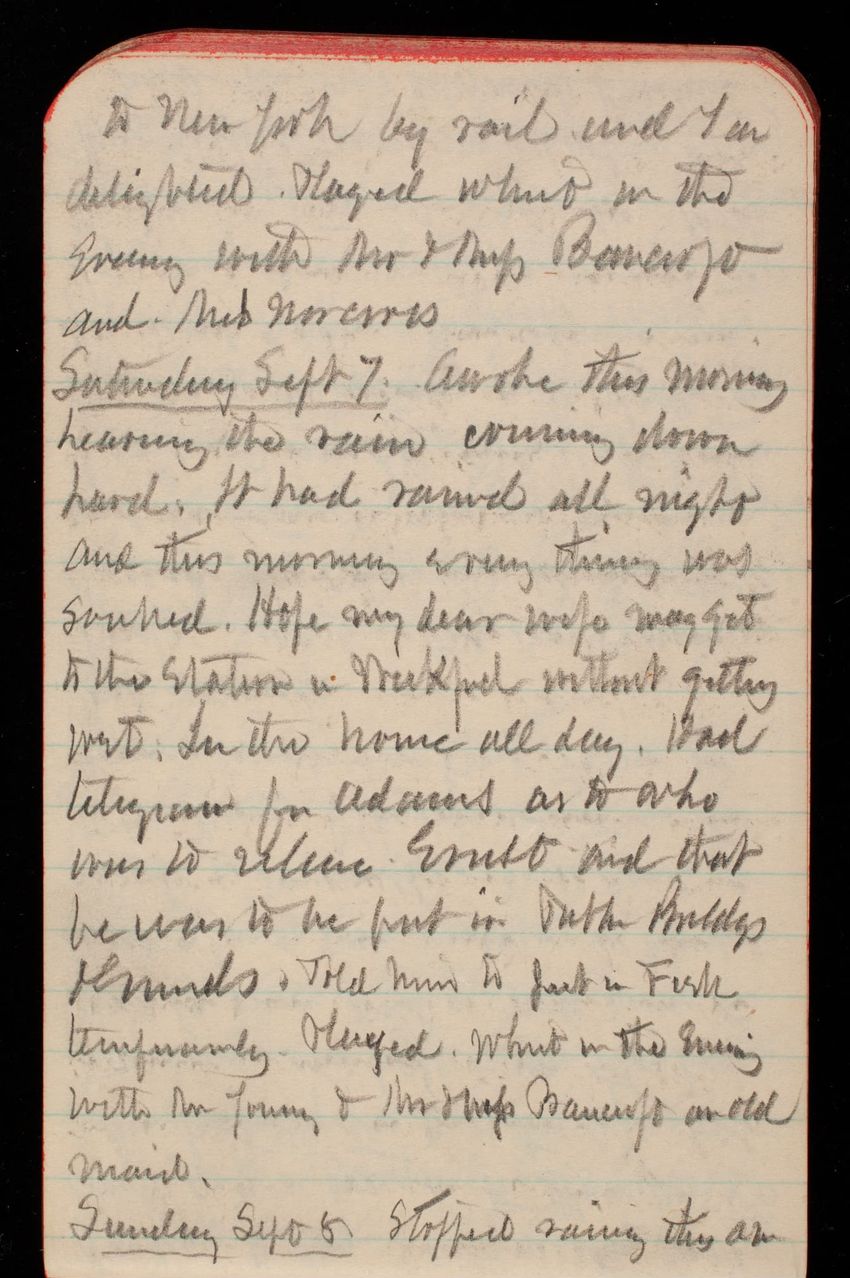 to New York by rail and I am
delighted. Played whist in the
Evening with Mr & Miss Bancroft
and Mrs Norcross
Saturday Sept 7. Awoke this morning
hearing the rain coming down
hard. It had rained all night
and this morning every thing was
soaked. Hope my dear wife may get
to the Station in without getting
wet. In the house all day. Had
telegram from Adams as to who
was to relieve Ernst and that
he was to be put in Public Buildgs
& Grounds. Told him to put in Fisk
temporarily. Played. Whist in the Evening
with Mr Young & Mr & Miss Bancroft an old
maid.
Sunday Sept 8 Stopped raining this am